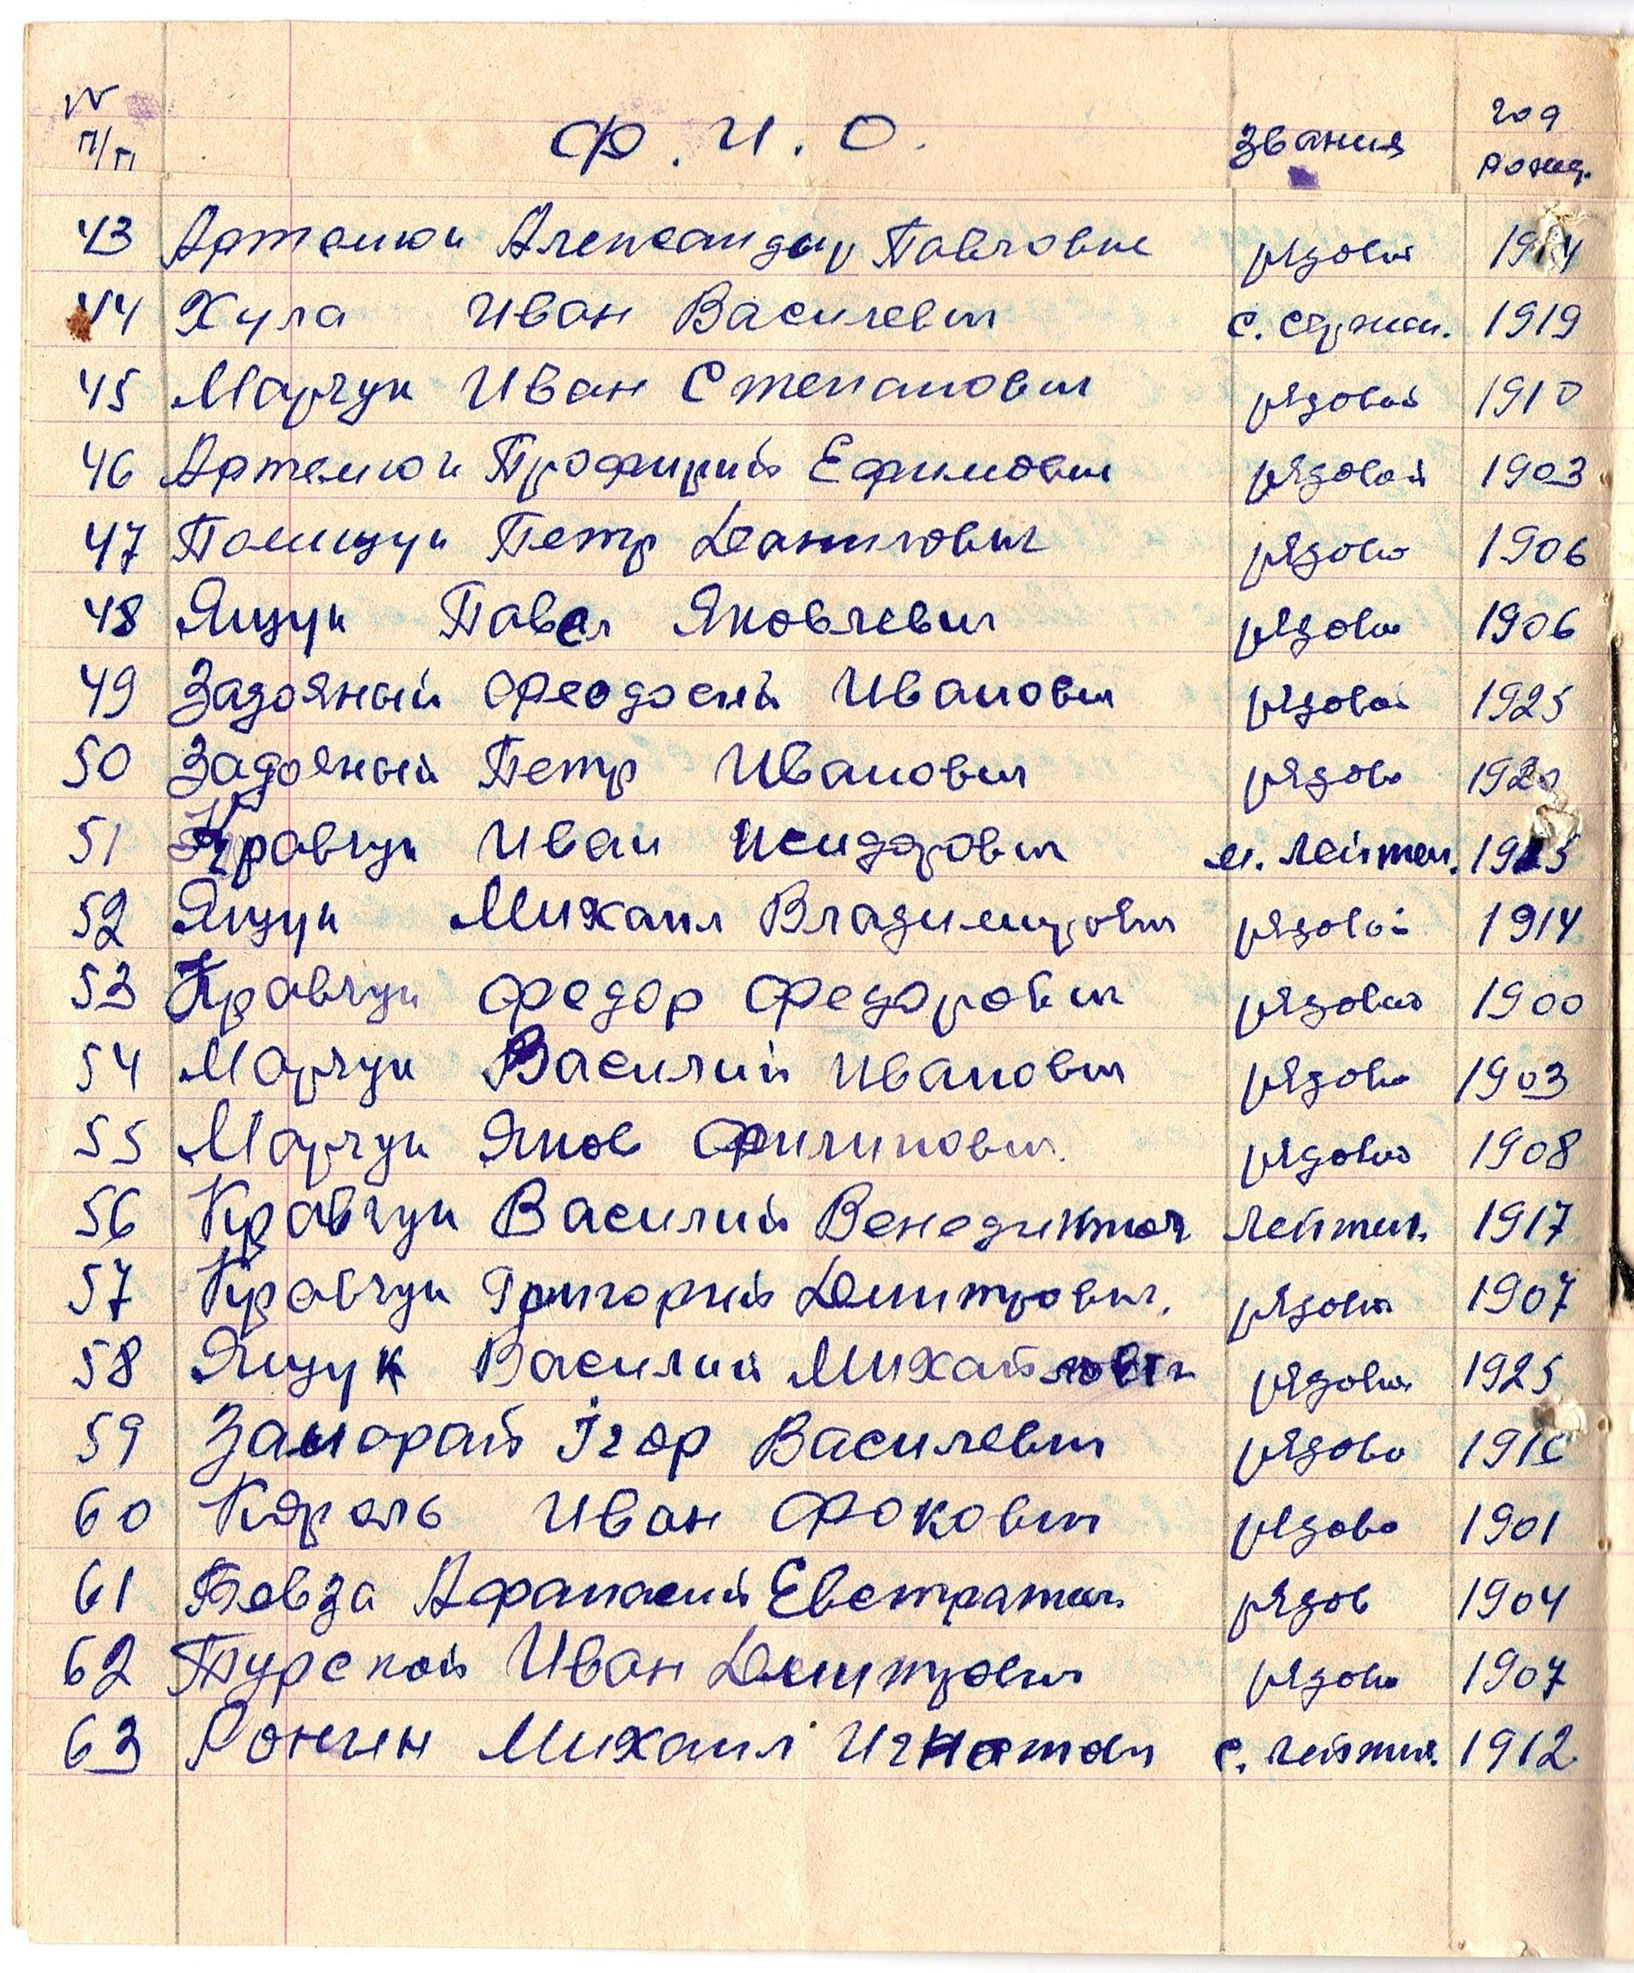 № п/п Ф. И. О. Звания год рожд.
43 Артемюк Александр Павлович рядовой 1914
44 Хула Иван Василевич с. сержан. 1919
45 Марчук Иван Степанович рядовой 1910
46 Артемюк Профирий Ефимович рядовой 1903
47 Полищук Петр Данилович рядовой 1906
48 Ящук Павел Яковлевич рядовой 1906
49 Задояный Феодосий Иванович рядовой 1925
50 Задояный Петр Иванович рядово 1920
51 Кравчук Иван Исидорович м. Лейтен. 1915
52 Ящук Михаил Владимирович рядовой 1914
53 Кравчук Федор Федорович рядовой 1900
54 Марчук Василий Иванович рядово 1903
55 Марчук Яков Филипович рядовой 1908
56 Кравчук Василий Венедиктов Лейтен. 1917
57 Кравчук Григорий Дмитрович. рядовой 1907
58 Ящук Василий Михайлович рядовой 1925
59 Заморай Ігор Василевич рядово
60 Король Иван Фокович рядово 1901
61 Бевза Афанасий Евстратич. рядов 1904
62 Турский Иван Дмитрович рядово 1907
63 Ронгин Михаил Игнатов с. лейтен. 1912